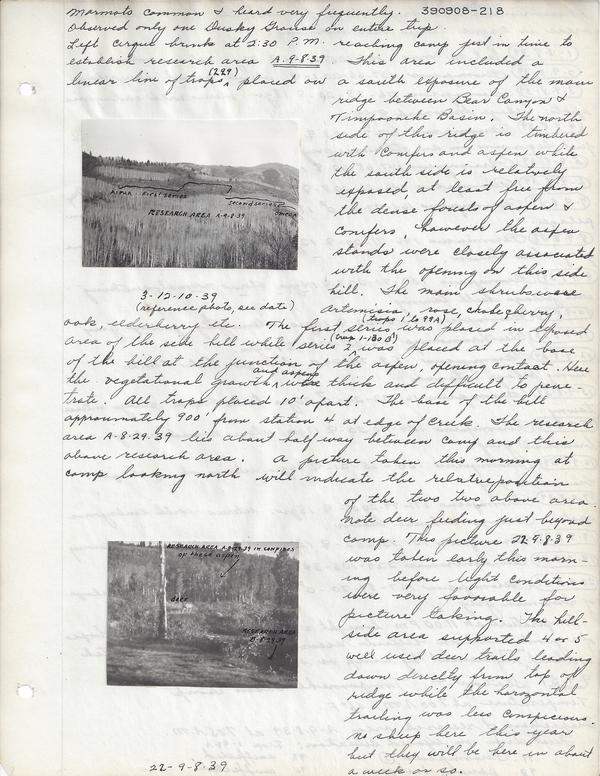 Marmots common & heard very frequently. 390908-218
Observed only one Dusky Grouse on entire trip.
Left cirque brink at 2:30 P.M. reaching camp just in time to
establish research area A.9-8.39. This area included a
linear line of traps (229) placed on a south exposure of the main
ridge between Bear Canyon &
Timpooneke Basin. The north
side of this ridge is timbered
with conifers and aspen while
the south side is relatively
exposed, at least free from
the dense forests of aspen &
conifers, however the aspen
stands were closely associated
with the opening on this side
hill. The main shrubs were
ALPHA - First series
Second series
OMEGA
RESEARCH AREA A-9-8-39
3-12-10-39
(reference photo, see date)
artemisia, rose, chokecherry,
oak, elderberry etc. The first series (traps 1' to 99A) was placed in exposed
area of the side hill while series 2 (trap 1-130 B') was placed at the base
of the hill at the junction of the aspen, opening contact. Here
the vegetational growth and aspens were thick and difficult to pene-
trate. All traps placed 10' apart. The base of the hill
approximately 900' from station 4 at edge of creek. The research
area A-8-29-39 lies about half way between camp and this
above research area. A picture taken this morning at
camp looking north will indicate the relative position
of the two two above area.
Note deer feeding just beyond
camp. This picture 22-9-8-39
was taken early this morn-
ing before light conditions
were very favorable for
picture taking. The hill-
side area supported 4 or 5
well used deer trails leading
down directly from top of
ridge while the horozontal
trailing was less conspicious.
No sheep here this year
but they will be here in about
a week or so.
RESEARCH AREA A-8-29-39 IN CONFINES
OF THESE ASPEN
deer
RESEARCH AREA
22-9-8-39